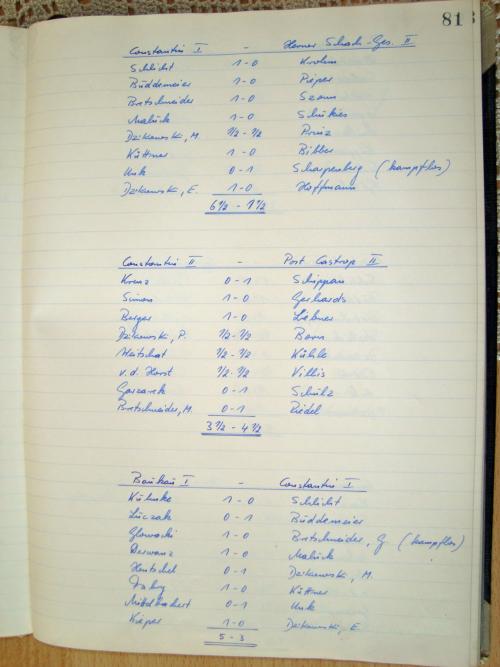 81
Constantin I - Herner Schach-Ges. II
Schlicht 1-0 Krohm
Büddemeier 1-0 Pieper
Bretschneider 1-0 Szam
Malück 1-0 Schükies
Dzikowski, M. ½-½ Prinz
Küttner 1-0 Bibber
Unk 0-1 Scharpenberg (kampflos)
Dzikowski, E. 1-0 Hoffmann
6½ - 1½
Constantin II - Post Castrop II
Krenz 0-1 Schippan
Simon 1-0 Gerhards
Berger 1-0 Leibner
Dzikowski, P. ½-½ Born
½-½ Kühle
v.d. Horst ½-½ Villis
Garzarek 0-1 Schulz
Bretschneider, M. 0-1 Riedel
3½ - 4½
Baukau I - Constantin I
Kuhnke 1-0 Schlicht
Luczak 0-1 Büddemeier
Glowacki 1-0 Bretschneider, G. (kampflos)
Derwanz 1-0 Malück
Hentschel 0-1 Dzikowski, M.
1-0 Küttner
0-1 Unk
Kieper 1-0 Dzikowski, E.
5-3